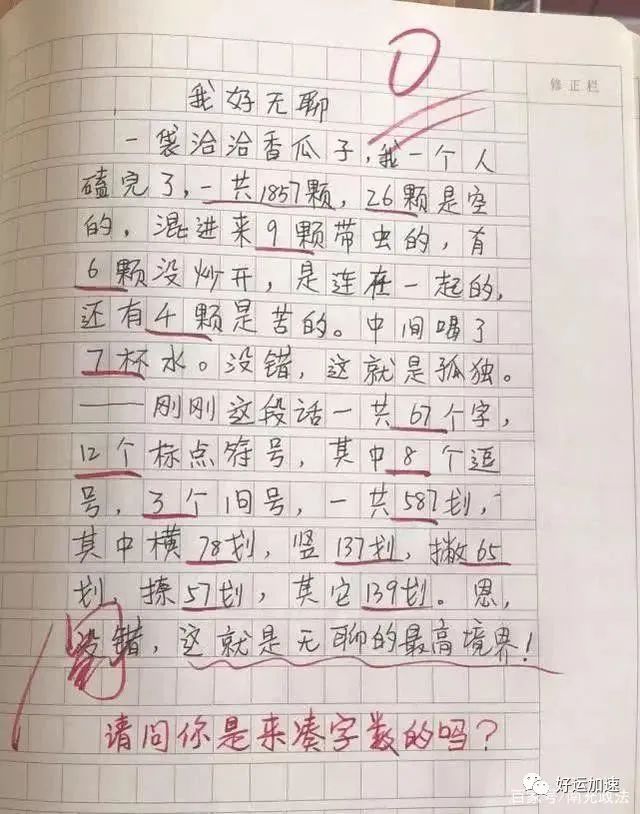 0
修正栏
我好无聊
一袋洽洽香瓜子,我一个人
磕完了,一共1857颗,26颗是空
的,混进来9颗带虫的,有
6颗没炒开,是连在一起的,
还有4颗是苦的。中间喝了
7杯水。没错,这就是孤独。
——刚刚这段话一共67个字,
12个标点符号,其中8个逗
号,3个间号,一共587划,
其中横78划,竖137划,撇65
划,捺57划,其它139划。恩,
没错,这就是无聊的最高境界!
阅
请问你是来凑字数的吗?
好运加速
百家号/南充政法